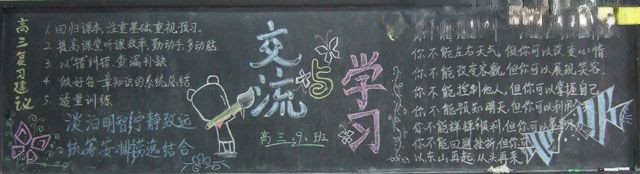 高三复习建议
1. 回归课本,注重基础,重视预习.
2. 提高课堂听课效率,勤动手,多动脑
3. 以错纠错,查漏补缺
4. 做好每一章知识的系统总结
5. 适量训练
淡泊明智宁静致远
统筹安排劳逸结合
交流与学习
高三.9.班
你不能左右天气,但你可以改变心情
你不能改变容貌,但你可以展现笑容
你不能控制他人,但你可以掌握自己
你不能预知明天,但你可以利用今天
你不能样样顺利,但你可以事事
你不能回避挫折,但你可
以东山再起,从头再来